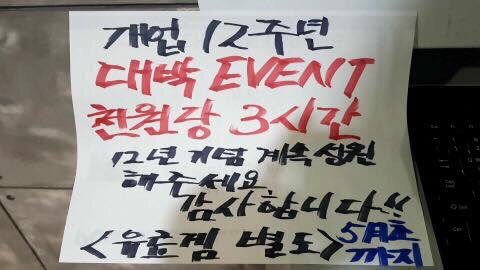 개업 12주년
대박 EVENT
천원당 3시간
12년 기념 계속 성원
해주세요
감사합니다!!
<유료겜 별도> 5月초
까지